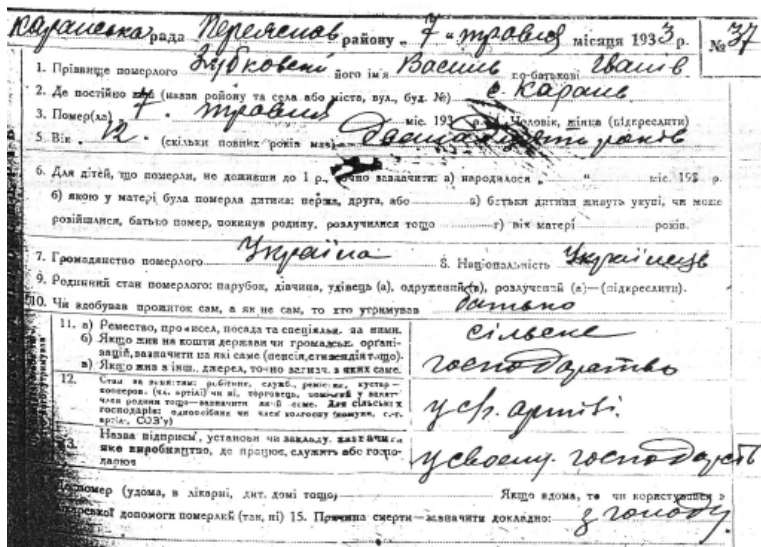 Каранська рада Переяслов району „ 7 “ травня місяця 1933 р. № 37
1. Прізвище померлого Зубковский його ім'я Василь по-батькові Іванів
2. Де постійно жив (назва району та села або міста, вул., буд. №) с. Карань
3. Помер(ла) 7 травня міс. 193 р. 4. Чоловік, жінка (підкреслити)
5. Вік 12. (скільки повних років мав)
6. Для дітей, що померли, не доживши до 1 р., точно зазначити: а) народилося „ “ міс. 193 р.
б) якою у матері була померла дитина: перша, друга, або в) батьки дитини живуть укупі, чи може
розійшлися, батько помер, покинув родину, розлучилися тощо г) вік матері років.
7. Громадянство померлого Україна 8. Національність Українець
9. Родинний стан померлого: парубок, дівчина, удівець (а), одружений (а), розлучений (а)—(підкреслити).
10. Чи здобував прожиток сам, а як не сам, то хто утримував батько
11. а) Ремество, промисел, посада та спеціяльн. за ними.
б) Якщо жив на кошти держави чи громадськ. органі-
зацій, зазначити на які саме (пенсія, стипендія тощо).
в) Якщо жив з інш. джерел, точно зазнач. з яких саме.
сільське
господарство
12. Стан за заняттям: робітник, служб., ремісник, кустар—
кооперов. (чл. артілі) чи ні, торговець,
член родини тощо—зазначити який саме. Для сільських
господарів: одноосібник чи член колгоспу (комуни, с.-г.
артіл., СОЗ'у)
у с/г. артілі.
13. Назва підприєм., установи чи закладу, зазначити
яке виробництво, де працює, служить або госпо-
дарює
у своему господарстві
помер (удома, в лікарні, дит. домі тощо) Якщо вдома, то чи користувався з
лікарської допомоги померлий (так, ні) 15. Причина смерти—зазначити докладно: з голоду